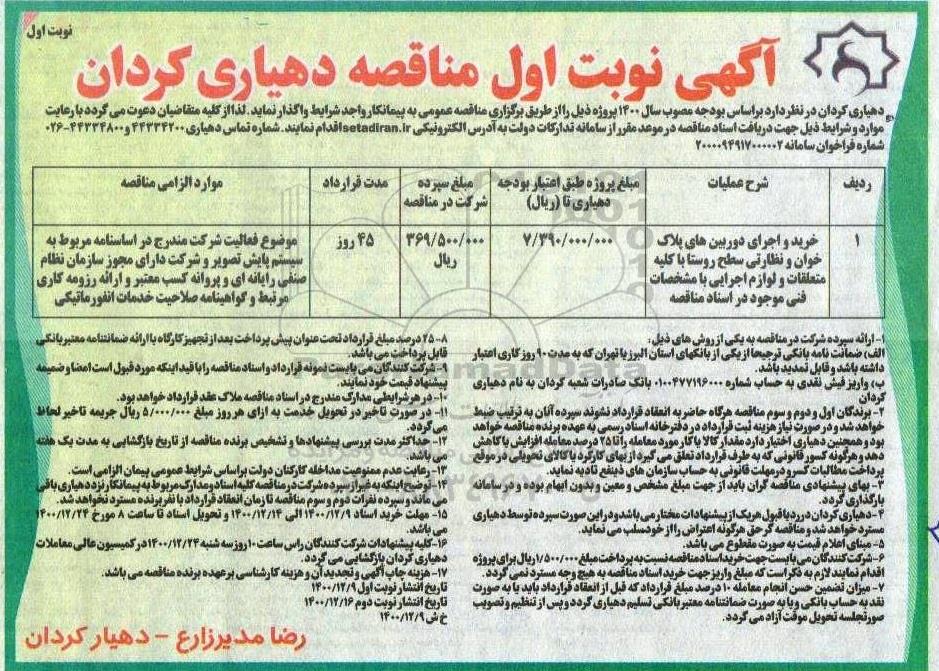 نوبت اول
آگهی نوبت اول مناقصه دهیاری کردان
دهیاری کردان در نظر دارد براساس بودجه مصوب سال ۱۴۰۰ پروژه ذیل را از طریق برگزاری مناقصه عمومی به پیمانکار واجد شرایط واگذار نماید. لذا از کلیه متقاضیان دعوت می گردد با رعایت
موارد و شرایط ذیل جهت دریافت اسناد مناقصه در موعد مقرر از سامانه تدارکات دولت به آدرس الکترونیکی setadiran.ir اقدام نمایند. شماره تماس دهیاری ۴۴۳۳۴۲۰۰ و ۴۴۳۳۴۸۰۰-۰۲۶
شماره فراخوان سامانه ۲۰۰۰۰۹۴۹۱۷۰۰۰۰۰۲
ردیف
شرح عملیات
مبلغ پروژه طبق اعتبار بودجه
دهیاری تا (ریال)
مبلغ سپرده
شرکت در مناقصه
مدت قرارداد
موارد الزامی مناقصه
۱
خرید و اجرای دوربین های پلاک
خوان و نظارتی سطح روستا با کلیه
متعلقات و لوازم اجرایی با مشخصات
فنی موجود در اسناد مناقصه
۷/۳۹۰/۰۰۰/۰۰۰
۳۶۹/۵۰۰/۰۰۰
ریال
۴۵ روز
موضوع فعالیت شرکت مندرج در اساسنامه مربوط به
سیستم پایش تصویر و شرکت دارای مجوز سازمان نظام
صنفی رایانه ای و پروانه کسب معتبر و ارائه رزومه کاری
مرتبط و گواهینامه صلاحیت خدمات انفورماتیکی
۱- ارائه سپرده شرکت در مناقصه به یکی از روش های ذیل:
الف) ضمانت نامه بانکی ترجیحا از یکی از بانکهای استان البرز یا تهران که به مدت ۹۰ روز کاری اعتبار
داشته باشد و قابل تمدید باشد.
ب) واریز فیش نقدی به حساب شماره ۰۱۰۰۴۷۷۱۹۶۰۰۰ بانک صادرات شعبه کردان به نام دهیاری
کردان
۲- برندگان اول و دوم و سوم مناقصه هرگاه حاضر به انعقاد قرارداد نشوند سپرده آنان به ترتیب ضبط
خواهد شد و در صورت نیاز هزینه ثبت قرارداد در دفترخانه اسناد رسمی به عهده برنده مناقصه خواهد
بود و همچنین دهیاری اختیار دارد مقدار کالا یا کار مورد معامله را تا ۲۵ درصد معامله افزایش یا کاهش
دهد و هرگونه کسور قانونی که به طرف قرارداد تعلق می گیرد از بهای کارکرد یا کالای تحویلی در موقع
پرداخت مطالبات کسر و در مهلت قانونی به حساب سازمان های ذینفع تادیه نماید.
۳- بهای پیشنهادی مناقصه گران باید از جهت مبلغ مشخص و معین و بدون ابهام بوده و در سامانه
بارگذاری گردد.
۴- دهیاری کردان در رد یا قبول هر یک از پیشنهادات مختار می باشد و در این صورت سپرده توسط دهیاری
مسترد خواهد شد و مناقصه گر حق هرگونه اعتراض را از خود سلب می نماید.
۵- مبنای اعلام قیمت به صورت مقطوع می باشد.
۶- شرکت کنندگان می بایست جهت خرید اسناد مناقصه نسبت به پرداخت مبلغ ۱/۵۰۰/۰۰۰ ریال برای پروژه
اقدام نمایند لازم به ذکر است که مبلغ واریز جهت خرید اسناد مناقصه به هیچ وجه مسترد نمی گردد.
۷- میزان تضمین حسن انجام معامله ۱۰ درصد مبلغ قرارداد که قبل از انعقاد قرارداد باید یا به صورت
نقد به حساب بانکی و یا به صورت ضمانتنامه معتبر بانکی تسلیم دهیاری گردد و پس از تنظیم و تصویب
صورتجلسه تحویل موقت آزاد می گردد.
۸- ۲۵ درصد مبلغ قرارداد تحت عنوان پیش پرداخت بعد از تجهیز کارگاه با ارائه ضمانتنامه معتبر بانکی
قابل پرداخت می باشد.
۹- شرکت کنندگان می بایست نمونه قرارداد و اسناد مناقصه را با قید اینکه مورد قبول است امضا و ضمیمه
پیشنهاد قیمت خود نمایند.
۱۰- در هر شرایطی مدارک مندرج در اسناد مناقصه ملاک عقد قرارداد خواهد بود.
۱۱- در صورت تاخیر در تحویل خدمت به ازای هر روز مبلغ ۵/۰۰۰/۰۰۰ ریال جریمه تاخیر لحاظ
می گردد.
۱۲- حداکثر مدت بررسی پیشنهادها و تشخیص برنده مناقصه از تاریخ بازگشایی به مدت یک هفته
می باشد.
۱۳- رعایت عدم ممنوعیت مداخله کارکنان دولت براساس شرایط عمومی پیمان الزامی است.
۱۴- توضیح اینکه به غیر از سپرده شرکت در مناقصه کلیه اسناد و مدارک مربوط به پیمانکار نزد دهیاری باقی
می ماند و سپرده نفرات دوم و سوم مناقصه تا زمان انعقاد قرارداد با نفر برنده مسترد نخواهد شد.
۱۵- مهلت خرید اسناد ۱۴۰۰/۱۲/۹ الی ۱۴۰۰/۱۲/۱۴ و تحویل اسناد تا ساعت ۸ مورخ ۱۴۰۰/۱۲/۲۴
می باشد.
۱۶- کلیه پیشنهادات شرکت کنندگان راس ساعت ۱۰ روز سه شنبه ۱۴۰۰/۱۲/۲۴ در کمیسیون عالی معاملات
دهیاری کردان بازگشایی می گردد.
۱۷- هزینه چاپ آگهی و تجدید آن و هزینه کارشناسی بر عهده برنده مناقصه می باشد.
تاریخ انتشار نوبت اول ۱۴۰۰/۱۲/۹
تاریخ انتشار نوبت دوم ۱۴۰۰/۱۲/۱۶
خ ش ۱۴۰۰/۱۲/۹
رضا مدیرزارع - دهیار کردان